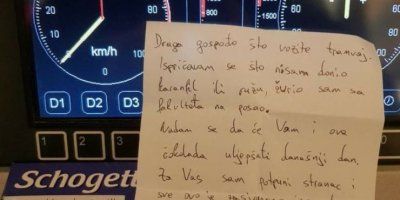 20
80
0
km/h
1500
1650
800
0
100
0
D1
D2
D3
1
2
3
Draga gospođo što vozite tramvaj.
Ispričavam se što nisam donio
karanfil ili ružu, žurio sam sa
fakulteta na posao.
Nadam se da će Vam i ova
čokolada uljepšati današnji dan.
Za Vas sam potpuni stranac i
sve ovo je
Schogett